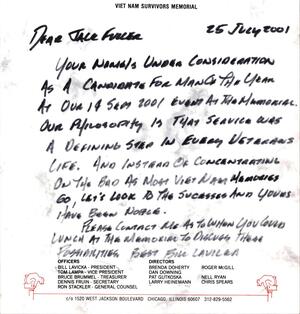 VIET NAM SURVIVORS MEMORIAL
25 JULY 2001
DEAR JACK FULLER
YOUR NAME IS UNDER CONSIDERATION
AS A CANDIDATE FOR MAN OF THE YEAR
AT OUR 14 SEPT 2001 EVENT AT THE MEMORIAL.
OUR PHILOSOPHY IS THAT SERVICE WAS
A DEFINING STEP IN EVERY VETERANS
LIFE. AND INSTEAD OF CONCENTRATING
ON THE BAD AS MOST VIET NAM MEMORIES
GO, LET'S LOOK TO THE SUCCESSES AND YOURS
HAVE BEEN NOBLE.
PLEASE CONTACT ME AS TO WHEN YOU COULD
LUNCH AT THE MEMORIAL TO DISCUSS THESE
POSSIBILITIES. BEST BILL LAVICKA
OFFICERS
BILL LAVICKA - PRESIDENT
TOM LAMPA - VICE PRESIDENT
BRUCE BRUMMEL - TREASURER
DENNIS FRUIN - SECRETARY
RON STACKLER - GENERAL COUNSEL
DIRECTORS
BRENDA DOHERTY
DAN DOWNING
PAT GUTKOSKA
LARRY HEINEMANN
ROGER McGILL
NELL RYAN
CHRIS SPEARS
c/o 1520 WEST JACKSON BOULEVARD CHICAGO, ILLINOIS 60607 312-829-5562